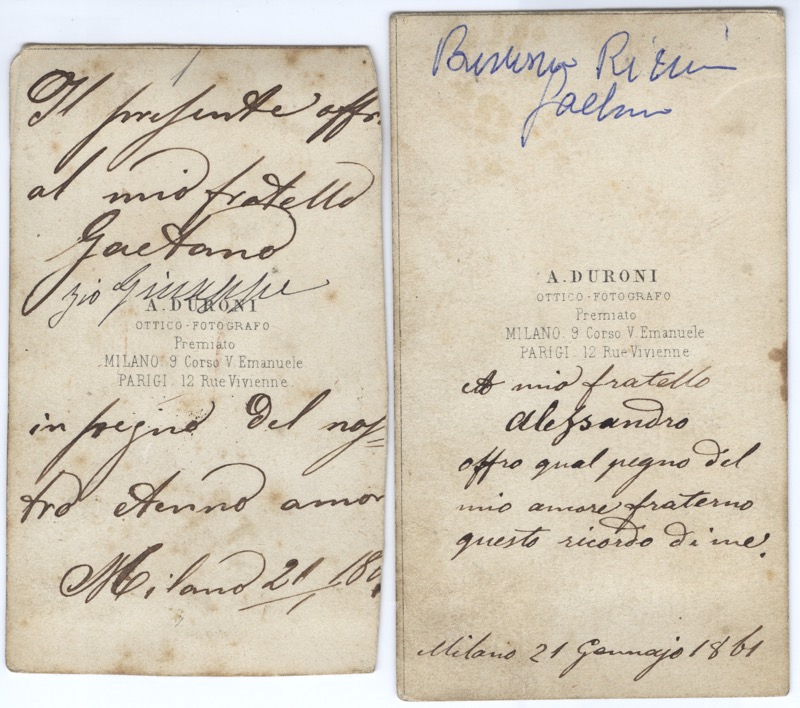 Il presente offr
al mio fratello
Gaetano
zio Giuseppe
A. DURONI
OTTICO-FOTOGRAFO
Premiato
MILANO. 9 Corso V. Emanuele
PARIGI. 12 Rue Vivienne
in pegno del nos=
tro eterno amor
Milano 21/1 186
Gaetano
A. DURONI
OTTICO-FOTOGRAFO
Premiato
MILANO. 9 Corso V. Emanuele
PARIGI. 12 Rue Vivienne
A mio fratello
Alessandro
offro qual pegno del
mio amore fraterno
questo ricordo di me.
Milano 21 Gennajo 1861